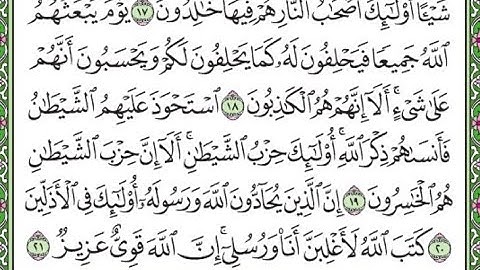 شَيْـًٔا أُو۟لَـٰٓئِكَ أَصْحَـٰبُ ٱلنَّارِ هُمْ فِيهَا خَـٰلِدُونَ ١٧ يَوْمَ يَبْعَثُهُمُ
ٱللَّهُ جَمِيعًا فَيَحْلِفُونَ لَهُۥ كَمَا يَحْلِفُونَ لَكُمْ وَيَحْسَبُونَ أَنَّهُمْ
عَلَىٰ شَىْءٍ ۚ أَلَآ إِنَّهُمْ هُمُ ٱلْكَـٰذِبُونَ ١٨ ٱسْتَحْوَذَ عَلَيْهِمُ ٱلشَّيْطَـٰنُ
فَأَنسَىٰهُمْ ذِكْرَ ٱللَّهِ ۚ أُو۟لَـٰٓئِكَ حِزْبُ ٱلشَّيْطَـٰنِ ۚ أَلَآ إِنَّ حِزْبَ ٱلشَّيْطَـٰنِ
هُمُ ٱلْخَـٰسِرُونَ ١٩ إِنَّ ٱلَّذِينَ يُحَآدُّونَ ٱللَّهَ وَرَسُولَهُۥٓ أُو۟لَـٰٓئِكَ فِى ٱلْأَذَلِّينَ
٢٠ كَتَبَ ٱللَّهُ لَأَغْلِبَنَّ أَنَا۠ وَرُسُلِىٓ ۚ إِنَّ ٱللَّهَ قَوِىٌّ عَزِيزٌ ٢١